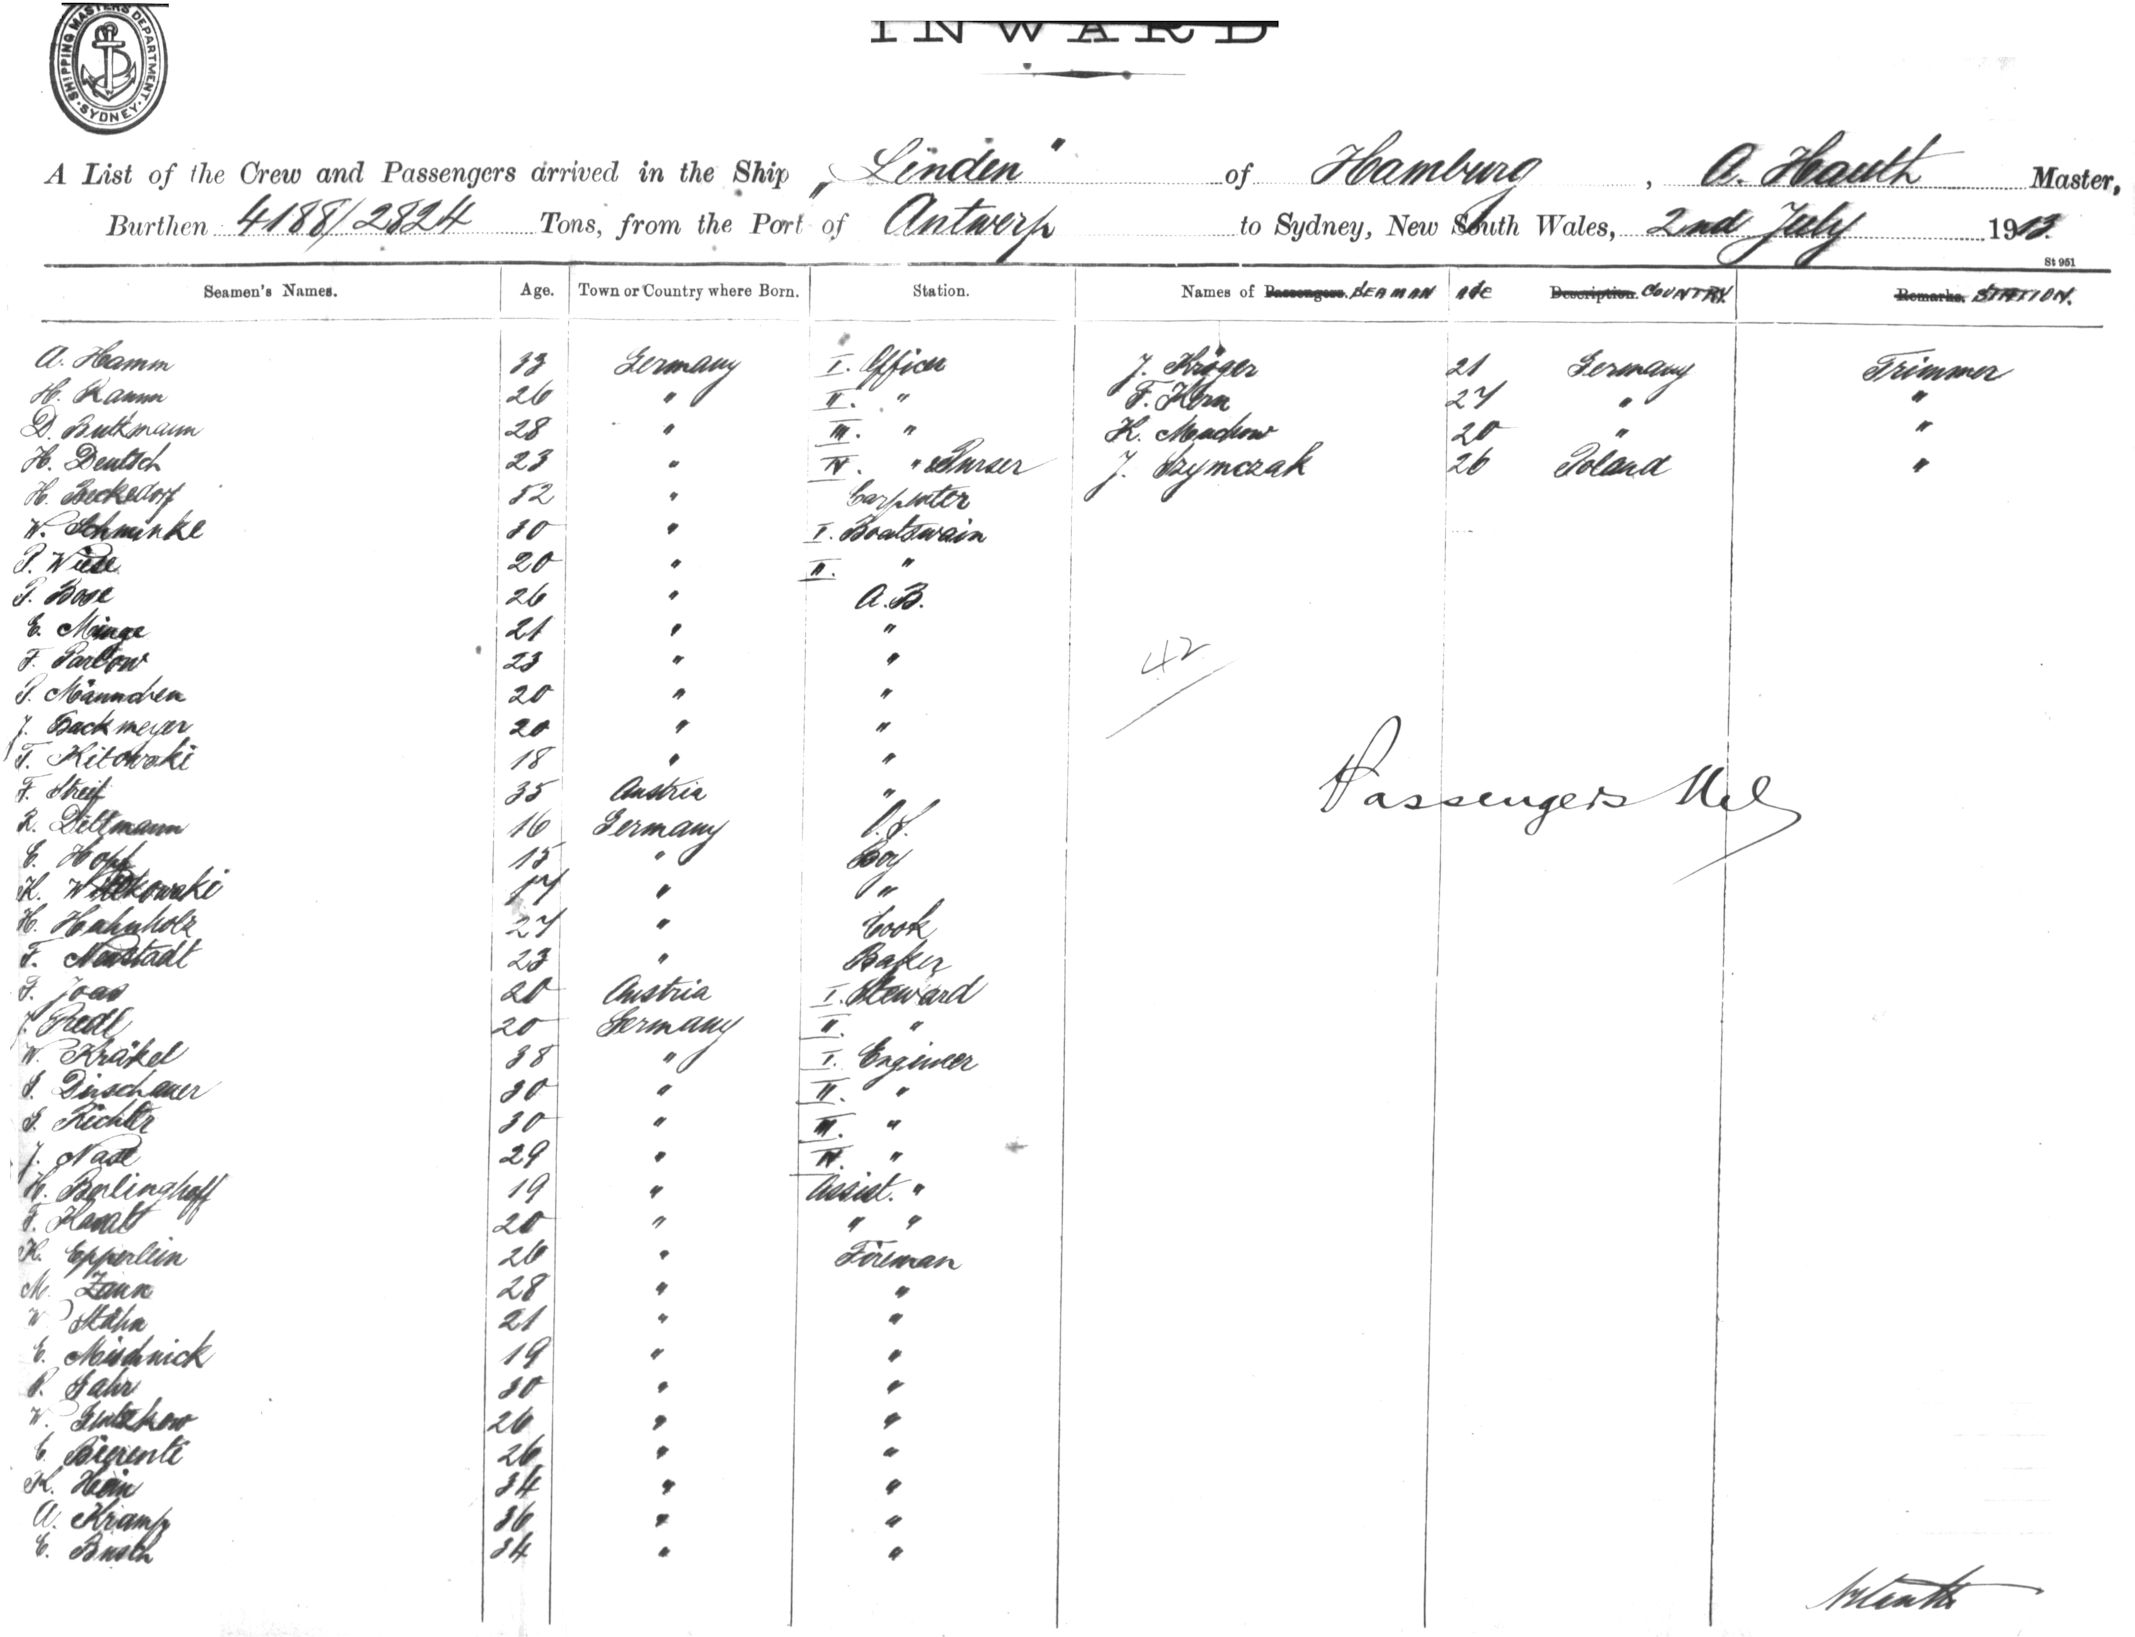 SHIPPING MASTERS DEPARTMENT. SYDNEY
INWARD
A List of the Crew and Passengers arrived in the Ship „Linden" of Hamburg, A. Hauth Master,
Burthen 4188/2824 Tons, from the Port of Antwerp to Sydney, New South Wales, 2nd July 1913.
St 951
Seamen's Names. Age. Town or Country where Born. Station. Names of Passengers. SEAMAN AGE Description. COUNTRY. Remarks. STATION.
A. Hamm 33 Germany I. Officer J. Kröger 21 Germany Trimmer
H. Ramm 26 " II. " F. Kern 27 " "
D. Butkmann 28 " III. " K. Machow 20 " "
H. Deutsch 23 " IV. " & Purser J. Szymczak 26 Poland "
H. Beckedorf 52 " Carpenter
W. Schminke 30 " I. Boatswain
P. Wiese 20 " II. "
P. Bose 26 " A.B.
E. Minge 21 " "
F. Parbow 23 " "
P. Männchen 20 " "
J. Backmeyer 20 " "
T. Kitowski 18 " "
F. Streif 35 Austria "
R. Dittmann 16 Germany O.S.
E. Hopf 15 " Boy
K. Wittkowski 17 " "
H. Hahnholz 27 " Cook
F. Neustadt 23 " Baker
F. Joas 20 Austria I. Steward
J. Predl 20 Germany II. "
W. Kräkel 38 " I. Engineer
G. Dirschauer 30 " II. "
G. Richter 30 " III. "
J. Nast 29 " IV. "
H. Berlinghoff 19 " Assist. "
F. 20 " " "
K. Epperlein 26 " Fireman
M. Zaun 28 " "
W. Stähn 21 " "
E. Mischnick 19 " "
P. Gahr 30 " "
W. Gutzkow 26 " "
E. Bierente 26 " "
K. Hein 34 " "
A. Krampf 36 " "
E. Busch 34 " "
42
Passengers Nil